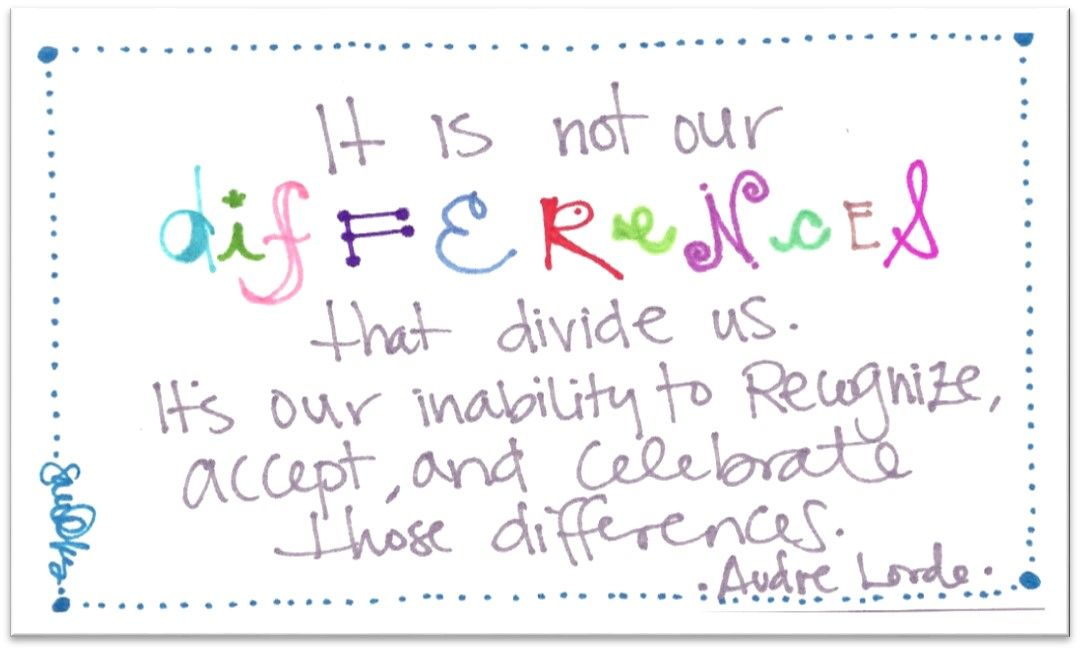 It is not our
difFEReNcES
that divide us.
It's our inability to Recognize,
accept, and celebrate
those differences.
. Audre Lorde.